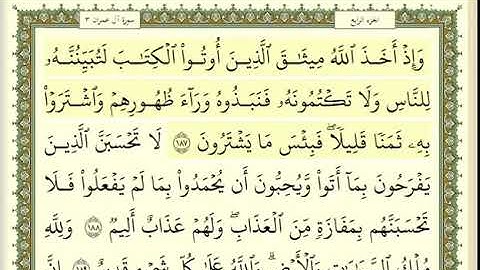 الجزء الرابع سورة آل عمران ٣
وَإِذْ أَخَذَ ٱللَّهُ مِيثَٰقَ ٱلَّذِينَ أُوتُوا۟ ٱلْكِتَٰبَ لَتُبَيِّنُنَّهُۥ
لِلنَّاسِ وَلَا تَكْتُمُونَهُۥ فَنَبَذُوهُ وَرَآءَ ظُهُورِهِمْ وَٱشْتَرَوْا۟
بِهِۦ ثَمَنًا قَلِيلًا ۖ فَبِئْسَ مَا يَشْتَرُونَ ١٨٧ لَا تَحْسَبَنَّ ٱلَّذِينَ
يَفْرَحُونَ بِمَآ أَتَوا۟ وَّيُحِبُّونَ أَن يُحْمَدُوا۟ بِمَا لَمْ يَفْعَلُوا۟ فَلَا
تَحْسَبَنَّهُم بِمَفَازَةٍ مِّنَ ٱلْعَذَابِ ۖ وَلَهُمْ عَذَابٌ أَلِيمٌ ١٨٨ وَلِلَّهِ
مُلْكُ ٱلسَّمَٰوَٰتِ وَٱلْأَرْضِ ۗ وَٱللَّهُ عَلَىٰ كُلِّ شَىْءٍ قَدِيرٌ ١٨٩ إِنَّ